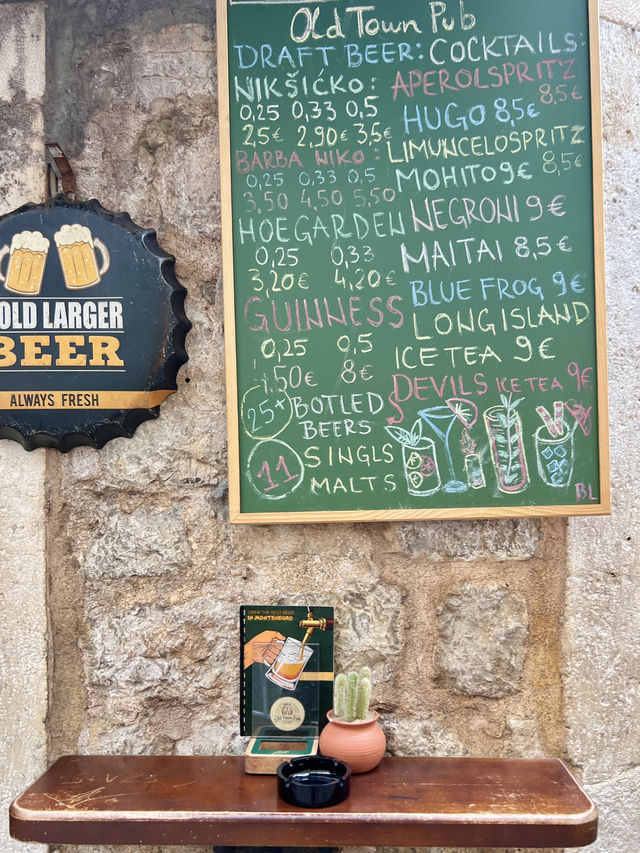 Old Town Pub
DRAFT BEER:
NIKŠIĆKO:
0,25 0,33 0,5
2,5€ 2,90€ 3,5€
BARBA NIKO :
0,25 0,33 0.5
3.50 4.50 5.50
HOEGARDEN
0,25 0,33
3,20€ 4,20€
GUINNESS
0,25 0,5
50€ 8€
25+ BOTLED
BEERS
11 SINGLS
MALTS
COCKTAILS:
APEROLSPRITZ
8,5€
HUGO 8,5€
LIMUNCELOSPRITZ
8,5€
MOHITO 9€
NEGRONI 9€
MAITAI 8,5€
BLUE FROG 9€
LONG ISLAND
ICE TEA 9€
DEVILS ICE TEA 9€
BL
OLD LARGER
BEER
ALWAYS FRESH
DRINK THE BEST BEER
IN MONTENEGRO
Old Town Pub